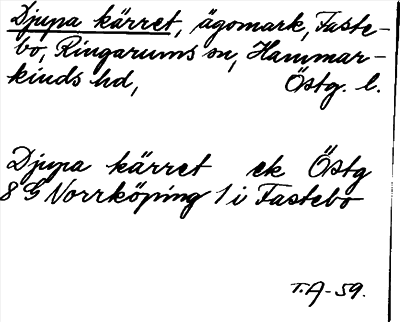 Djupa kärret, ägomark, Faste-
bo, Ringarums sn, Hammar-
kinds hd, Östg. l.
Djupa kärret ek Östg
8 G Norrköping 1 i Fastebo
T.A-59.